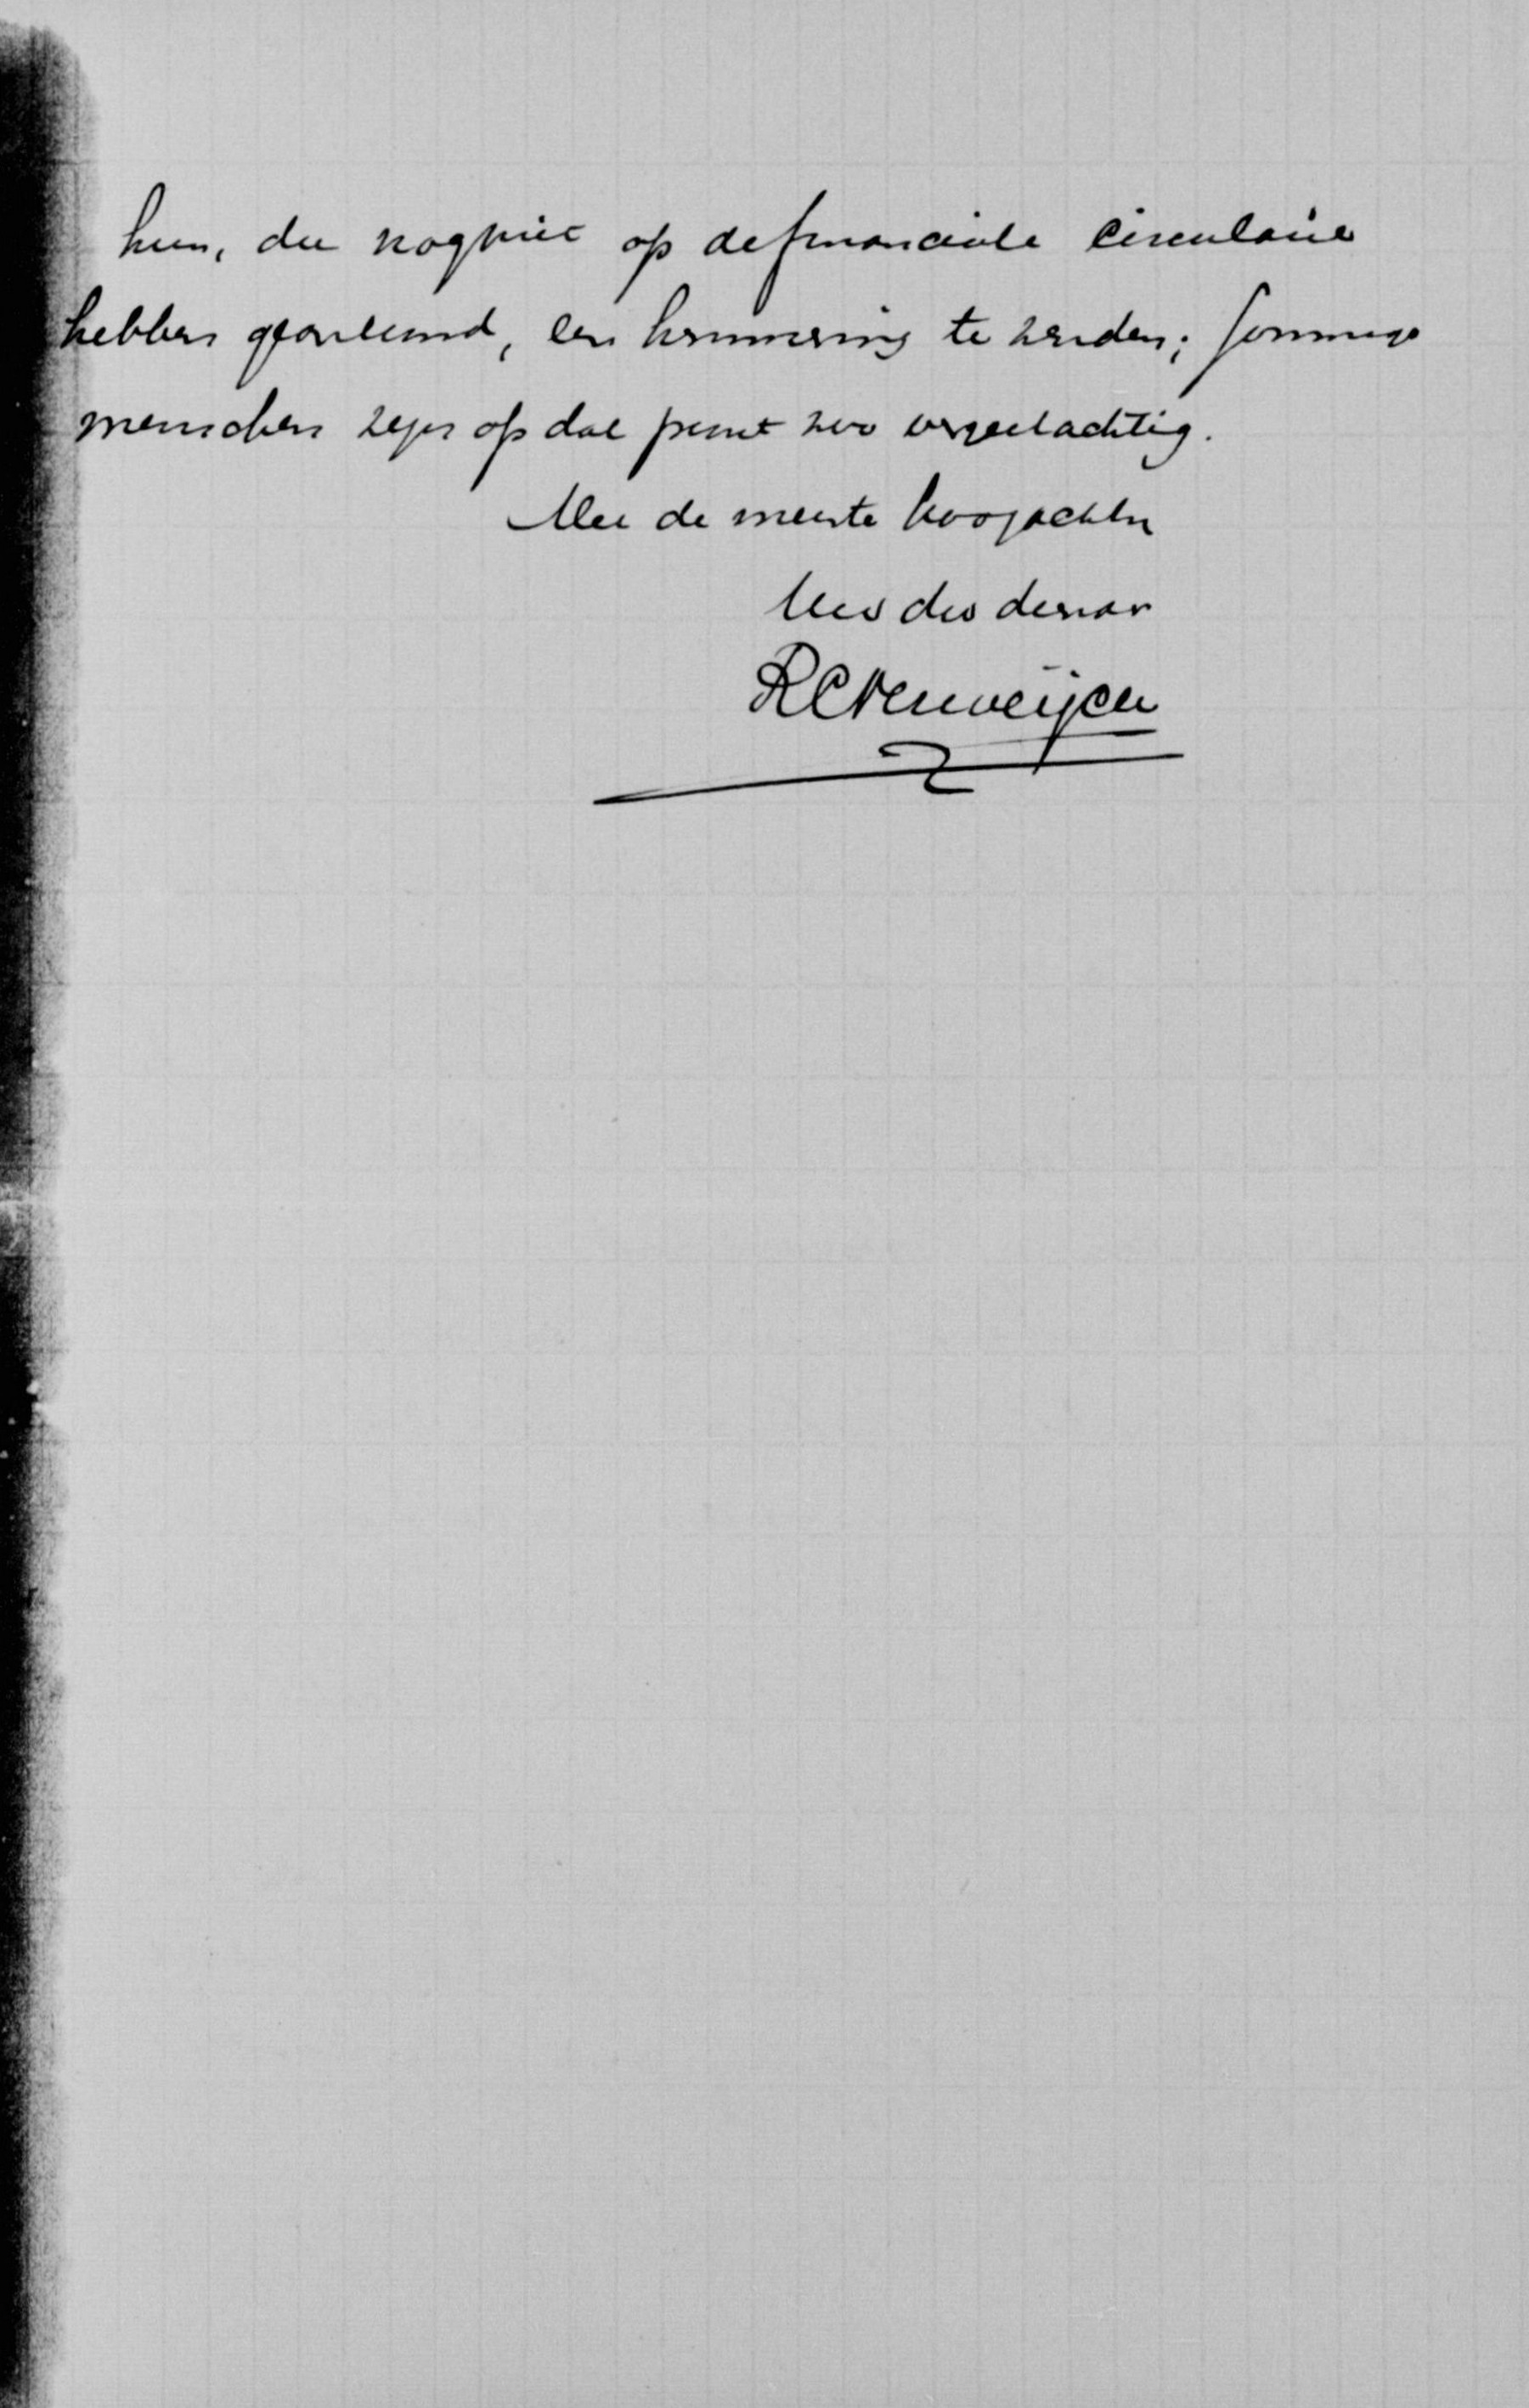 hun, die nog niet op de financieele circulaire
hebben geantwoord, een herinnering te zenden; sommige
menschen zijn op dat punt zoo vergeetachtig.
Met de meeste hoogachten
Uw dw dienaar